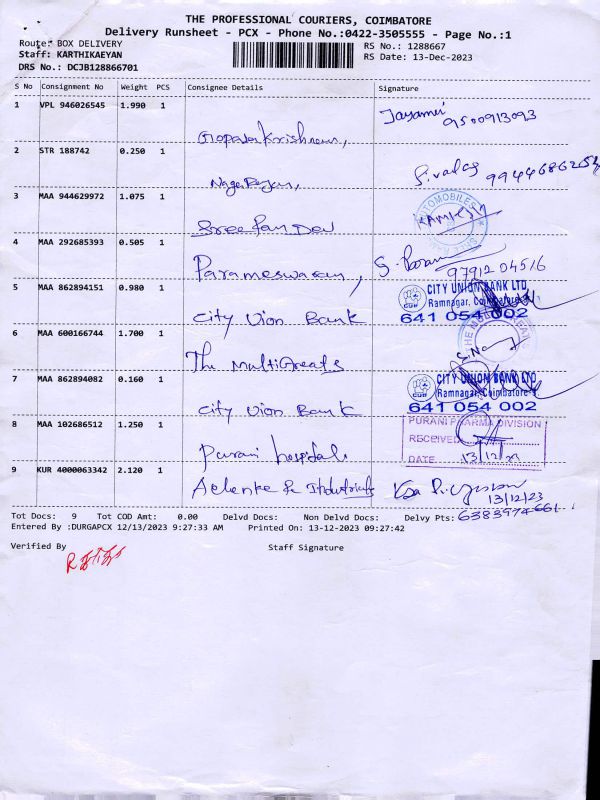 THE PROFESSIONAL COURIERS, COIMBATORE
Delivery Runsheet - PCX - Phone No.:0422-3505555 - Page No.:1
Route: BOX DELIVERY
RS No.: 1288667
Staff: KARTHIKAEYAN
RS Date: 13-Dec-2023
DRS No.: DCJB128866701
S No Consignment No Weight PCS Consignee Details Signature
1 VPL 946026545 1.990 1
Gopalakrishnan, 9500913093
2 STR 188742 0.250 1
Nagarajan,
3 MAA 944629972 1.075 1
Sree
4 MAA 292685393 0.505 1
Parameswaran,
97912 04516
5 MAA 862894151 0.980 1
CITY UNION BANK LTD
Ramnagar, Coimbatore
641 054 002
City Uion Bank
6 MAA 600166744 1.700 1
The MultiGreats
7 MAA 862894082 0.160 1
CITY UNION BANK LTD
Ramnagar, Coimbatore
641 054 002
City Uion Bank
8 MAA 102686512 1.250 1
PURANI PHARMA DIVISION
RECEIVED
DATE
Purani
9 KUR 4000063342 2.120 1
13/12/23
Tot Docs: 9 Tot COD Amt: 0.00 Delvd Docs: Non Delvd Docs: Delvy Pts:
6383974661
Entered By :DURGAPCX 12/13/2023 9:27:33 AM Printed On: 13-12-2023 09:27:42
Verified By Staff Signature